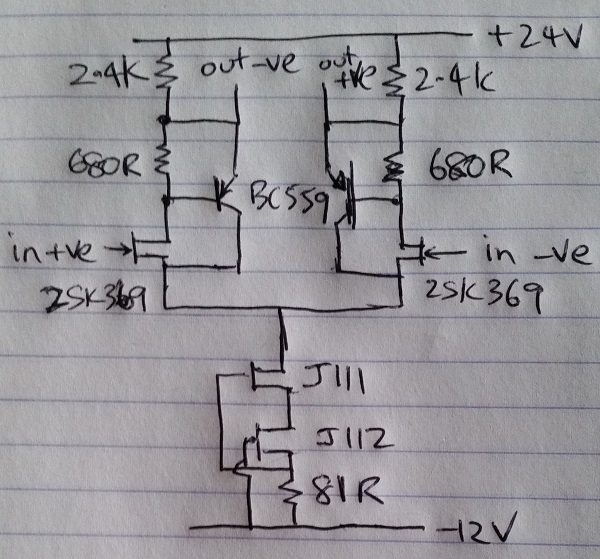 +24V
2.4K out-ve out +ve 2.4K
680R 680R
BC559
in+ve in -ve
2SK369 2SK369
J111
J112
81R
-12V